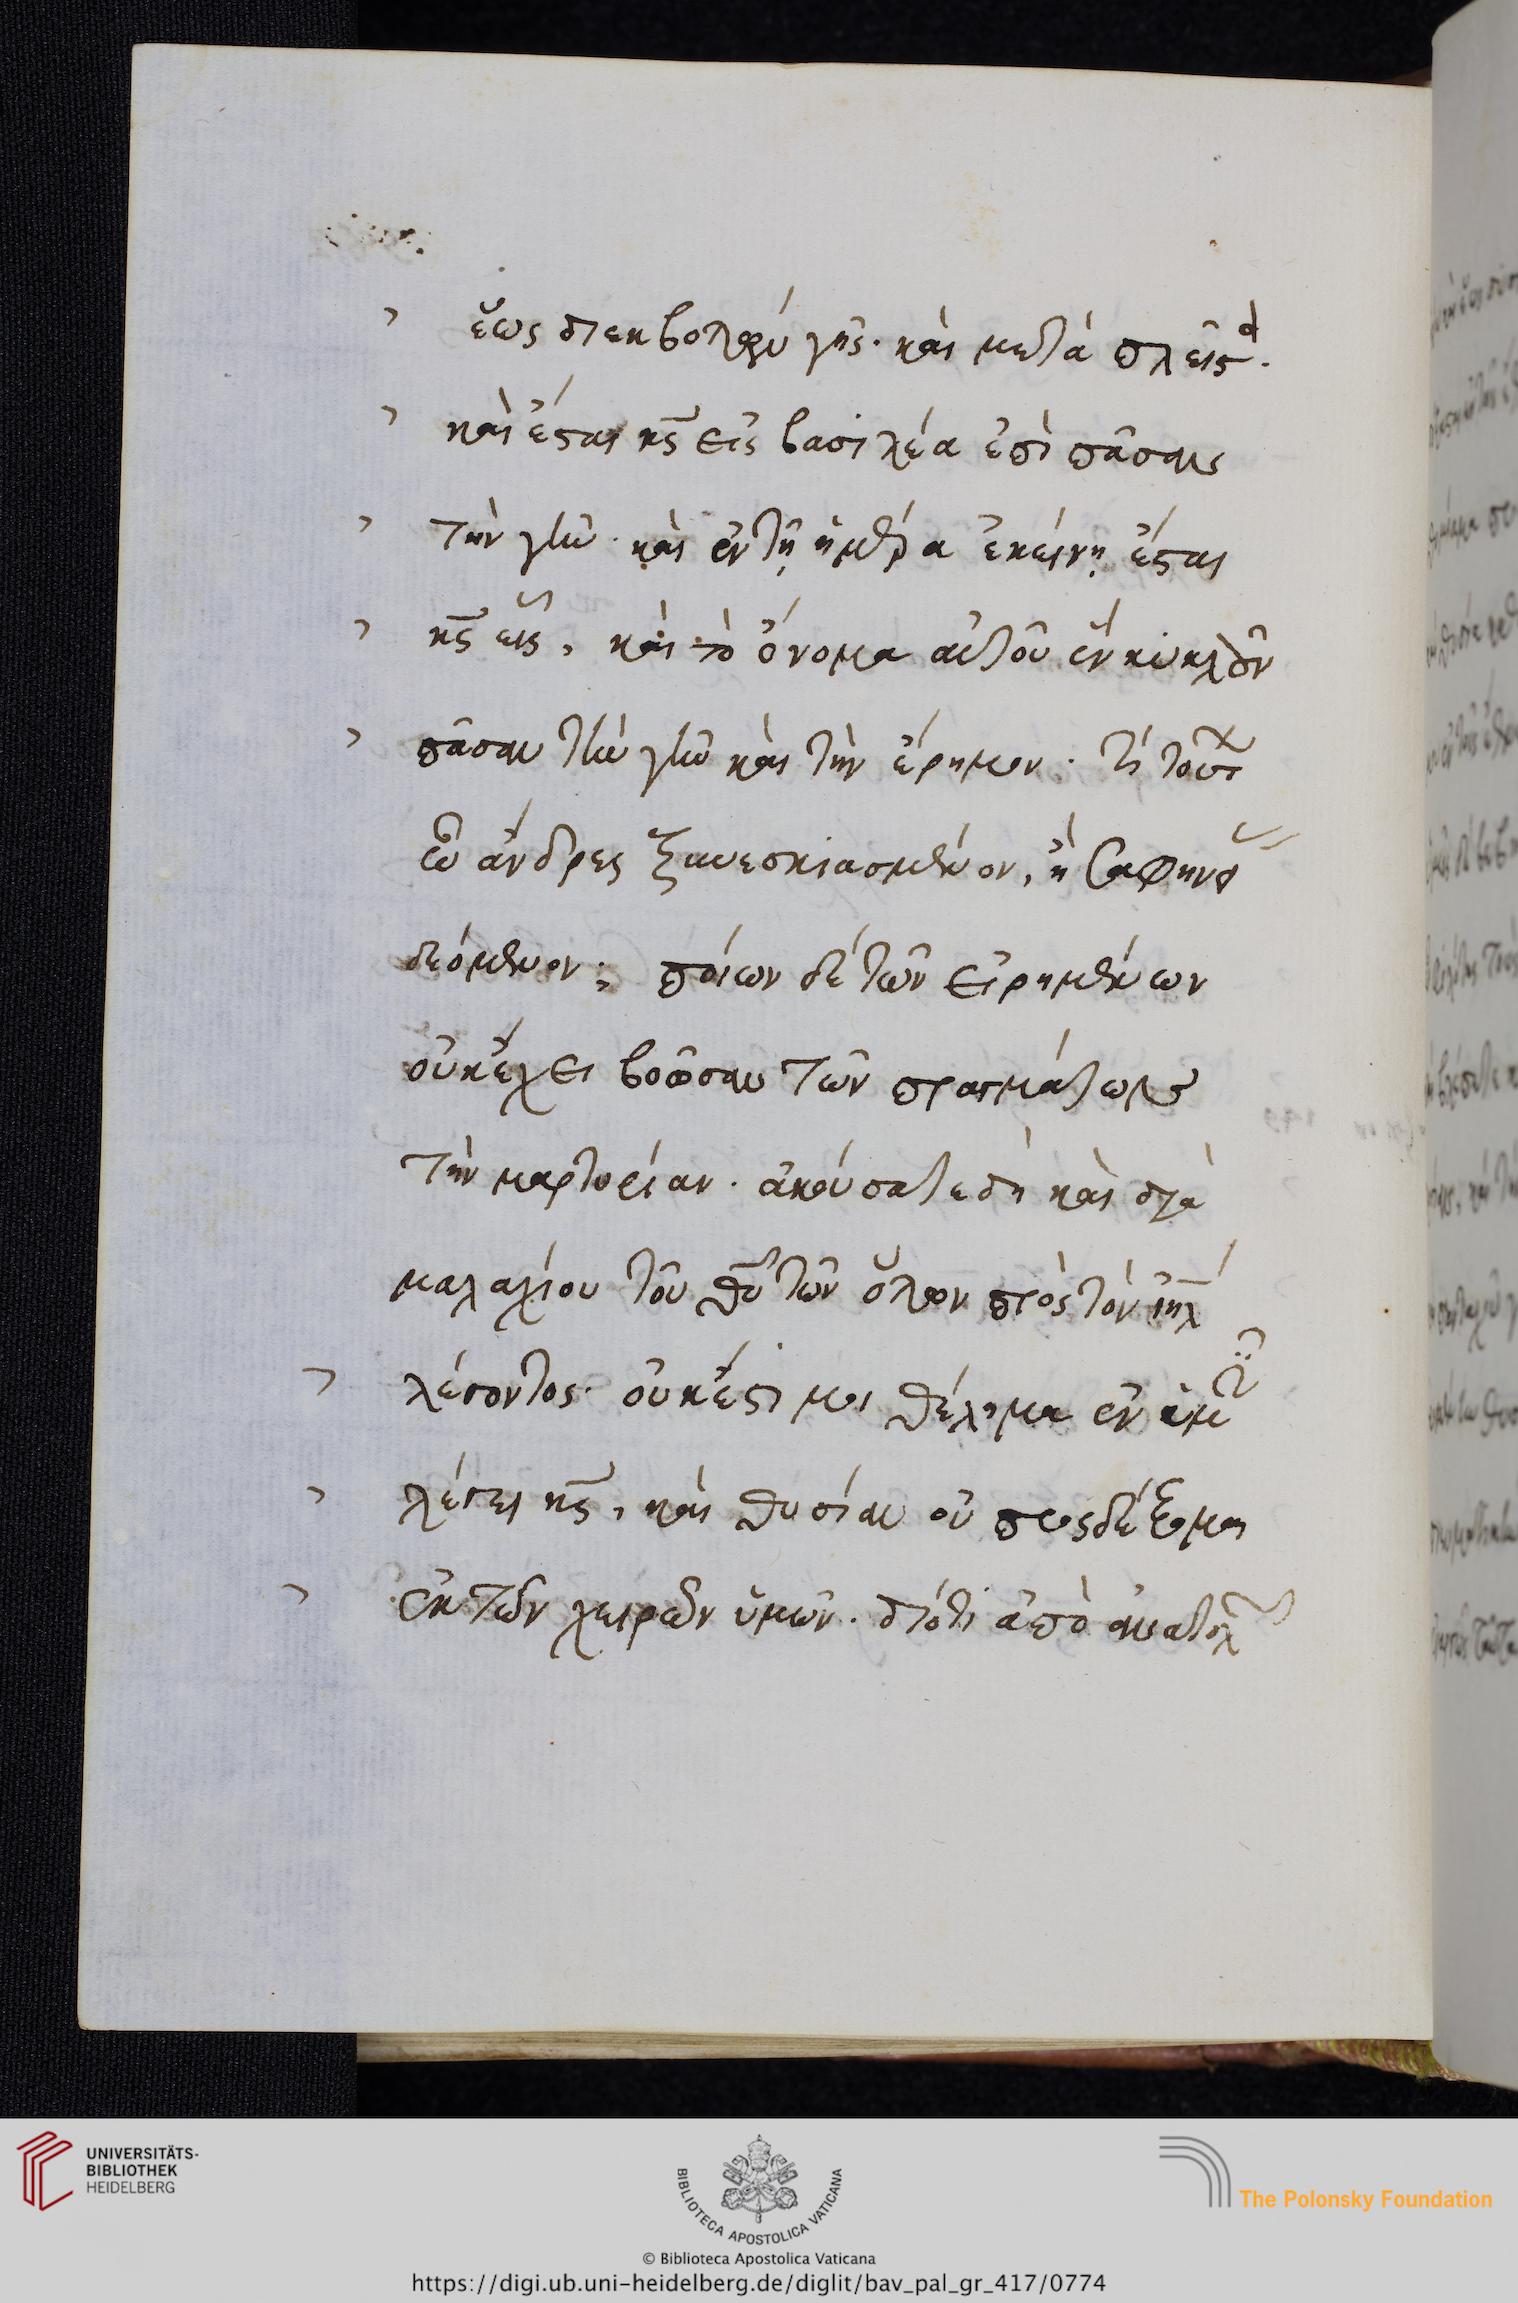 ἕως διεκβολῶν γῆς. καὶ μετὰ πλεῖστα.
καὶ ἔσται κς εἰς βασιλέα ἐπὶ πᾶσαν
τὴν γῆν. καὶ ἐν τῇ ἡμέρᾳ ἐκείνῃ ἔσται
κς εἷς, καὶ τὸ ὄνομα αὐτοῦ ἓν κυκλῶν
πᾶσαν τὴν γῆν καὶ τὴν ἔρημον. τί τούτων
ὦ ἄνδρες ξυνεσκιασμένον, ἢ σαφηνείας
δεόμενον; ποίων δὲ τῶν εἰρημένων
οὐκ ἔχει βοῶσαν τῶν πραγμάτων
τὴν μαρτυρίαν. ἀκούσατε δὴ καὶ διὰ
μαλαχίου τοῦ θυ τῶν ὅλων πρὸς τὸν ιηλ
λέγοντος. οὐκ ἔστι μοι θέλημα ἐν ὑμῖν
λέγει κς, καὶ θυσίαν οὐ προσδέξομαι
ἐκ τῶν χειρῶν ὑμῶν. διότι ἀπὸ ἀνατολῶν
UNIVERSITÄTS-
BIBLIOTHEK
HEIDELBERG
BIBLIOTECA APOSTOLICA VATICANA
The Polonsky Foundation
© Biblioteca Apostolica Vaticana
https://digi.ub.uni-heidelberg.de/diglit/bav_pal_gr_417/0774